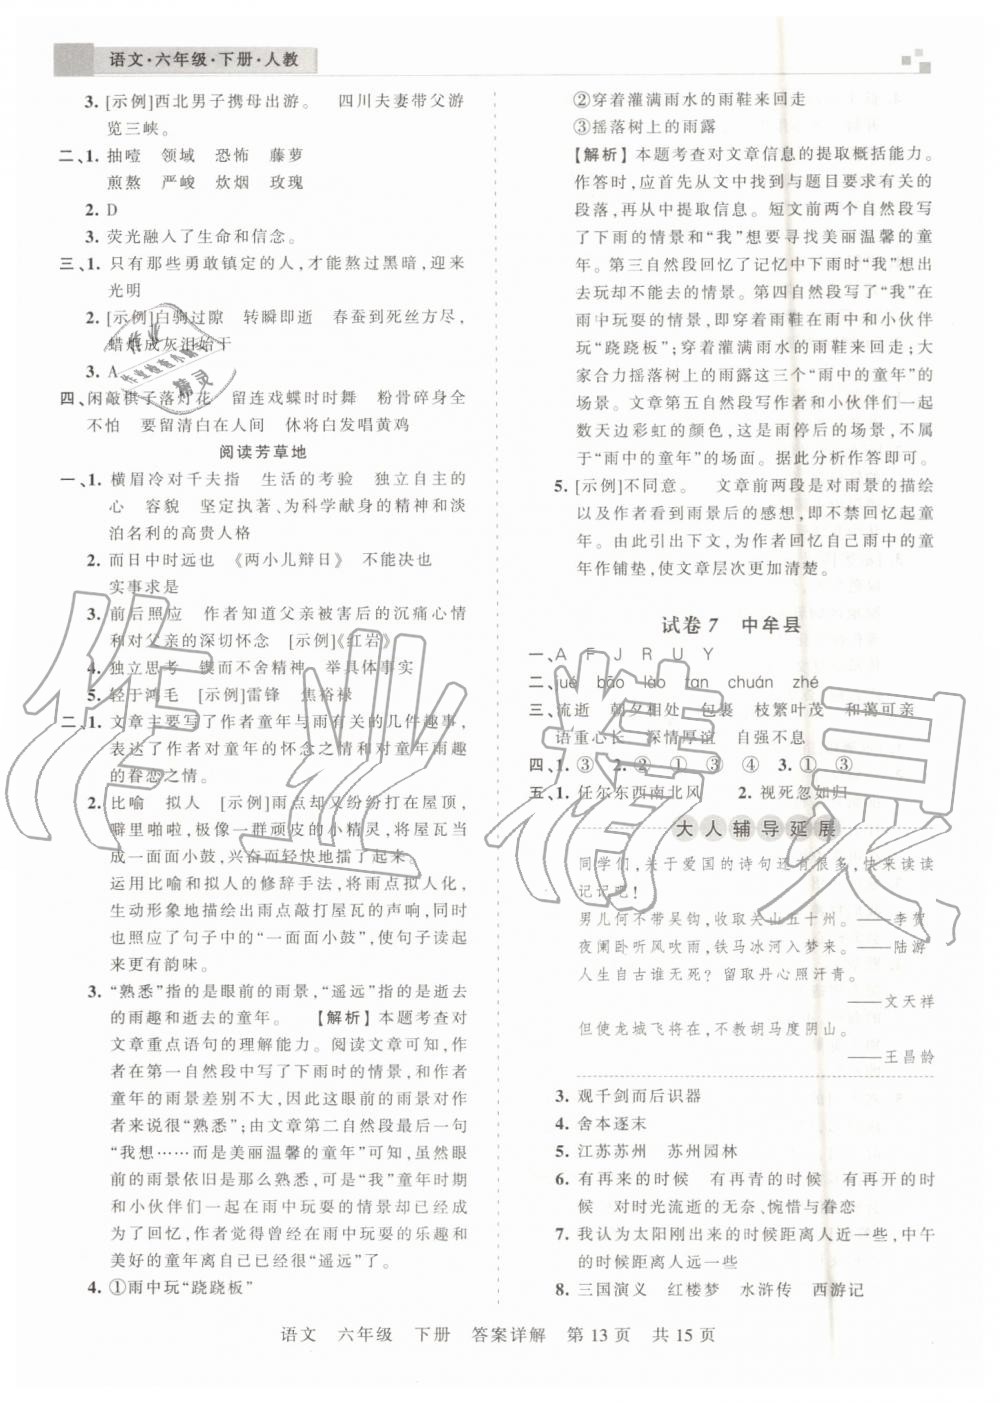 语文·六年级·下册·人教
3. [示例]西北男子携母出游。　四川夫妻带父游
览三峡。
二、1. 抽噎　领域　恐怖　藤萝
煎熬　严峻　炊烟　玫瑰
2. D
3. 荧光融入了生命和信念。
三、1. 只有那些勇敢镇定的人,才能熬过黑暗,迎来
光明
2. [示例]白驹过隙　转瞬即逝　春蚕到死丝方尽,
蜡炬成灰泪始干
3. A
四、闲敲棋子落灯花　留连戏蝶时时舞　粉骨碎身全
不怕　要留清白在人间　休将白发唱黄鸡
阅读芳草地
一、1. 横眉冷对千夫指　生活的考验　独立自主的
心　容貌　坚定执著、为科学献身的精神和淡
泊名利的高贵人格
2. 而日中时远也　《两小儿辩日》　不能决也
实事求是
3. 前后照应　作者知道父亲被害后的沉痛心情
和对父亲的深切怀念　[示例]《红岩》
4. 独立思考　锲而不舍精神　举具体事实
5. 轻于鸿毛　[示例]雷锋　焦裕禄
二、1. 文章主要写了作者童年与雨有关的几件趣事,
表达了作者对童年的怀念之情和对童年雨趣
的眷恋之情。
2. 比喻　拟人　[示例]雨点却又纷纷打在屋顶,
噼里啪啦,极像一群顽皮的小精灵,把屋瓦当
成一面面小鼓,兴奋而轻快地擂了起来。
运用比喻和拟人的修辞手法,将雨点拟人化,
生动形象地描绘出雨点敲打屋瓦的声响,同时
也呼应了句子中的“一面面小鼓”,使句子读起
来更有韵味。
3. “熟悉”指的是眼前的雨景,“遥远”指的是逝去
的雨趣和逝去的童年。　【解析】本题考查对
文章重点语句的理解能力。阅读文章可知,作
者在第一自然段描写了下雨时的情景,和作者
童年的雨景差别不大,因此眼前的雨景对作
者来说很“熟悉”;由文章第二自然段最后一句
“我想……而是美丽温馨的童年”可知,虽然眼
前的雨景依旧是那么熟悉,可是“我”童年时期
和小伙伴们一起在雨中玩耍的情景却已经成
为了回忆,作者觉得曾经在雨中玩耍的乐趣和
美好的童年离自己已经很“遥远”了。
4. ①雨中玩“跷跷板”
②穿着灌满雨水的雨鞋来回走
③摇落树上的雨露
【解析】本题考查对文章信息的提取概括能力。
作答时,应首先从文中找到与题目要求有关的
段落,再从中提取信息。短文前两个自然段写
了下雨的情景和“我”想要寻找美丽温馨的童
年。第三自然段回忆了记忆中下雨时“我”想出
去玩却不能去的情景。第四自然段写了“我”在
雨中玩耍的情景,即穿着雨鞋在雨中和小伙伴
玩“跷跷板”;穿着灌满雨水的雨鞋来回走;大
家合力摇落树上的雨露这三个“雨中的童年”的
场景。文章第五自然段写作者和小伙伴们一起
数天边彩虹的颜色,这是雨停后的场景,不属
于“雨中的童年”的场面。据此分析作答即可。
5. [示例]不同意。　文章前两段是对雨景的描绘
以及作者看到雨景后的感想,即不禁回忆起童
年。由此引出下文,为作者回忆自己雨中的童
年作铺垫,使文章层次更加清楚。
试卷 7　中牟县
一、A　F　J　R　U　Y
二、uě　bāo　lào　tan　chuán　zhé
三、流逝　朝夕相处　包裹　枝繁叶茂　和蔼可亲
语重心长　深情厚谊　自强不息
四、1. ③　2. ②　①　③　④　3. ①　③
五、1. 任尔东西南北风　2. 视死忽如归
大人辅导延展
同学们,关于爱国的诗句还有很多,快来读读
记记吧!
男儿何不带吴钩,收取关山五十州。——李贺
夜阑卧听风吹雨,铁马冰河入梦来。——陆游
人生自古谁无死?留取丹心照汗青。
——文天祥
但使龙城飞将在,不教胡马度阴山。
——王昌龄
3. 观千剑而后识器
4. 舍本逐末
5. 江苏苏州　苏州园林
6. 有再来的时候　有再青的时候　有再开的时
候　对时光流逝的无奈、惋惜与眷恋
7. 我认为太阳刚出来的时候距离人近一些,中午
的时候距离人远一些
8. 三国演义　红楼梦　水浒传　西游记
语文　六年级　下册　答案详解　第 13 页　共 15 页
作业精灵